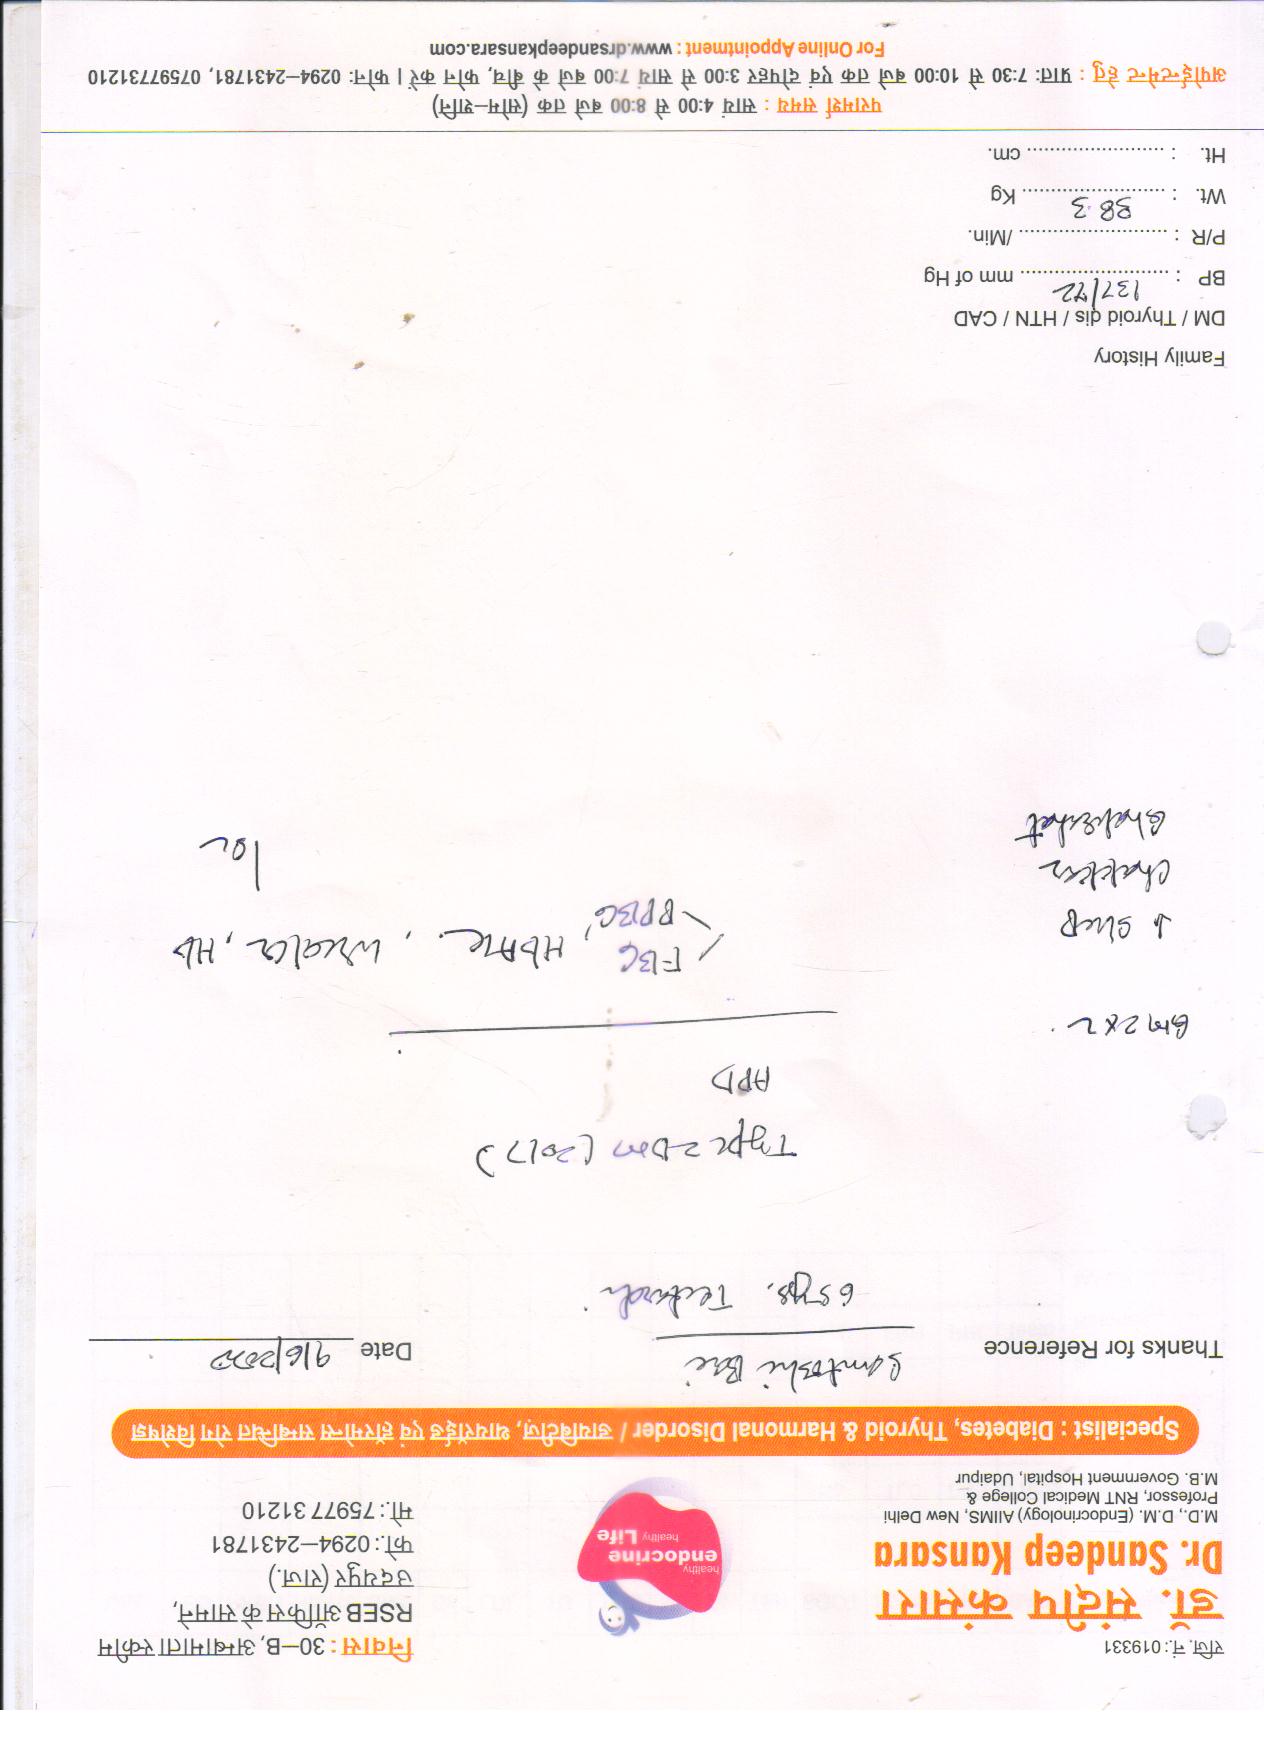 रजि. नं.: 019331
डॉ. संदीप कंसारा
Dr. Sandeep Kansara
M.D., D.M. (Endocrinology) AIIMS, New Delhi
Professor, RNT Medical College &
M.B. Government Hospital, Udaipur
healthy
endocrine
healthy Life
निवास : 30–B, अम्बामाता स्कीम
RSEB ऑफिस के सामने,
उदयपुर (राज.)
फो.: 0294–2431781
मो.: 75977 31210
Specialist : Diabetes, Thyroid & Harmonal Disorder / डायबिटीज़, थायरॉईड एवं हॉरमोन्स सम्बन्धित रोग विशेषज्ञ
Thanks for Reference
Santoshi Bai
Date 9/6/2022
65 yrs.
Type 2 DM (2017)
APD
FBG
PPBG, HbA1c, Hb
↓ Sleep
Family History
DM / Thyroid dis / HTN / CAD
BP : 137/72 mm of Hg
P/R : /Min.
Wt. : 38.3 Kg
Ht. : cm.
परामर्श समय : सायं 4:00 से 8:00 बजे तक (सोम–शनि)
अपॉईन्टमेन्ट हेतु : प्रातः 7:30 से 10:00 बजे तक एवं दोपहर 3:00 से सायं 7:00 बजे के बीच, फोन करें | फोन: 0294–2431781, 07597731210
For Online Appointment : www.drsandeepkansara.com